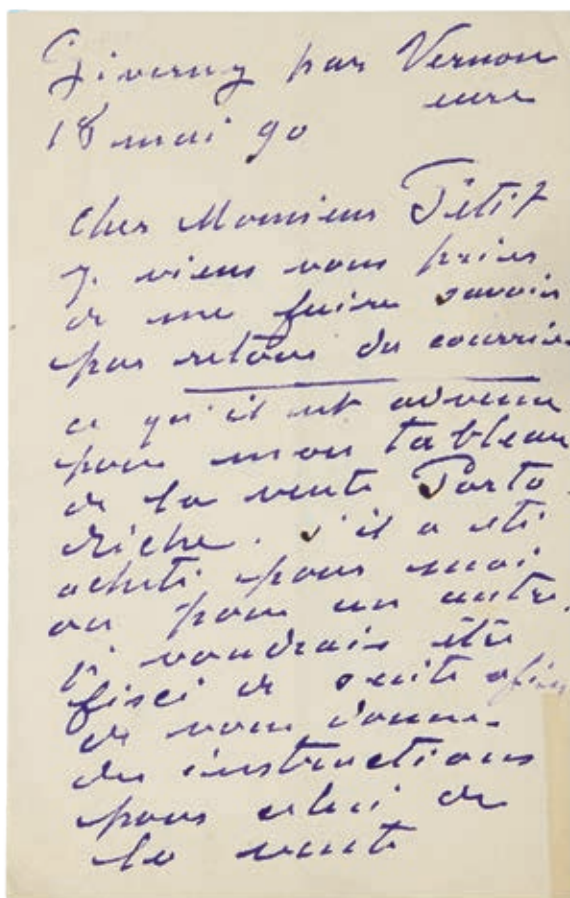 Giverny par Vernon
eure
18 mai 90
cher Monsieur Petit
je viens vous prier
de me faire savoir
par retour du courrier
ce qu'il est advenu
pour mon tableau
de la vente Porto
Riche. s'il a été
acheté pour moi
ou pour un autre.
je voudrais être
fixé de suite afin
de vous donner
des instructions
pour celui de
la vente